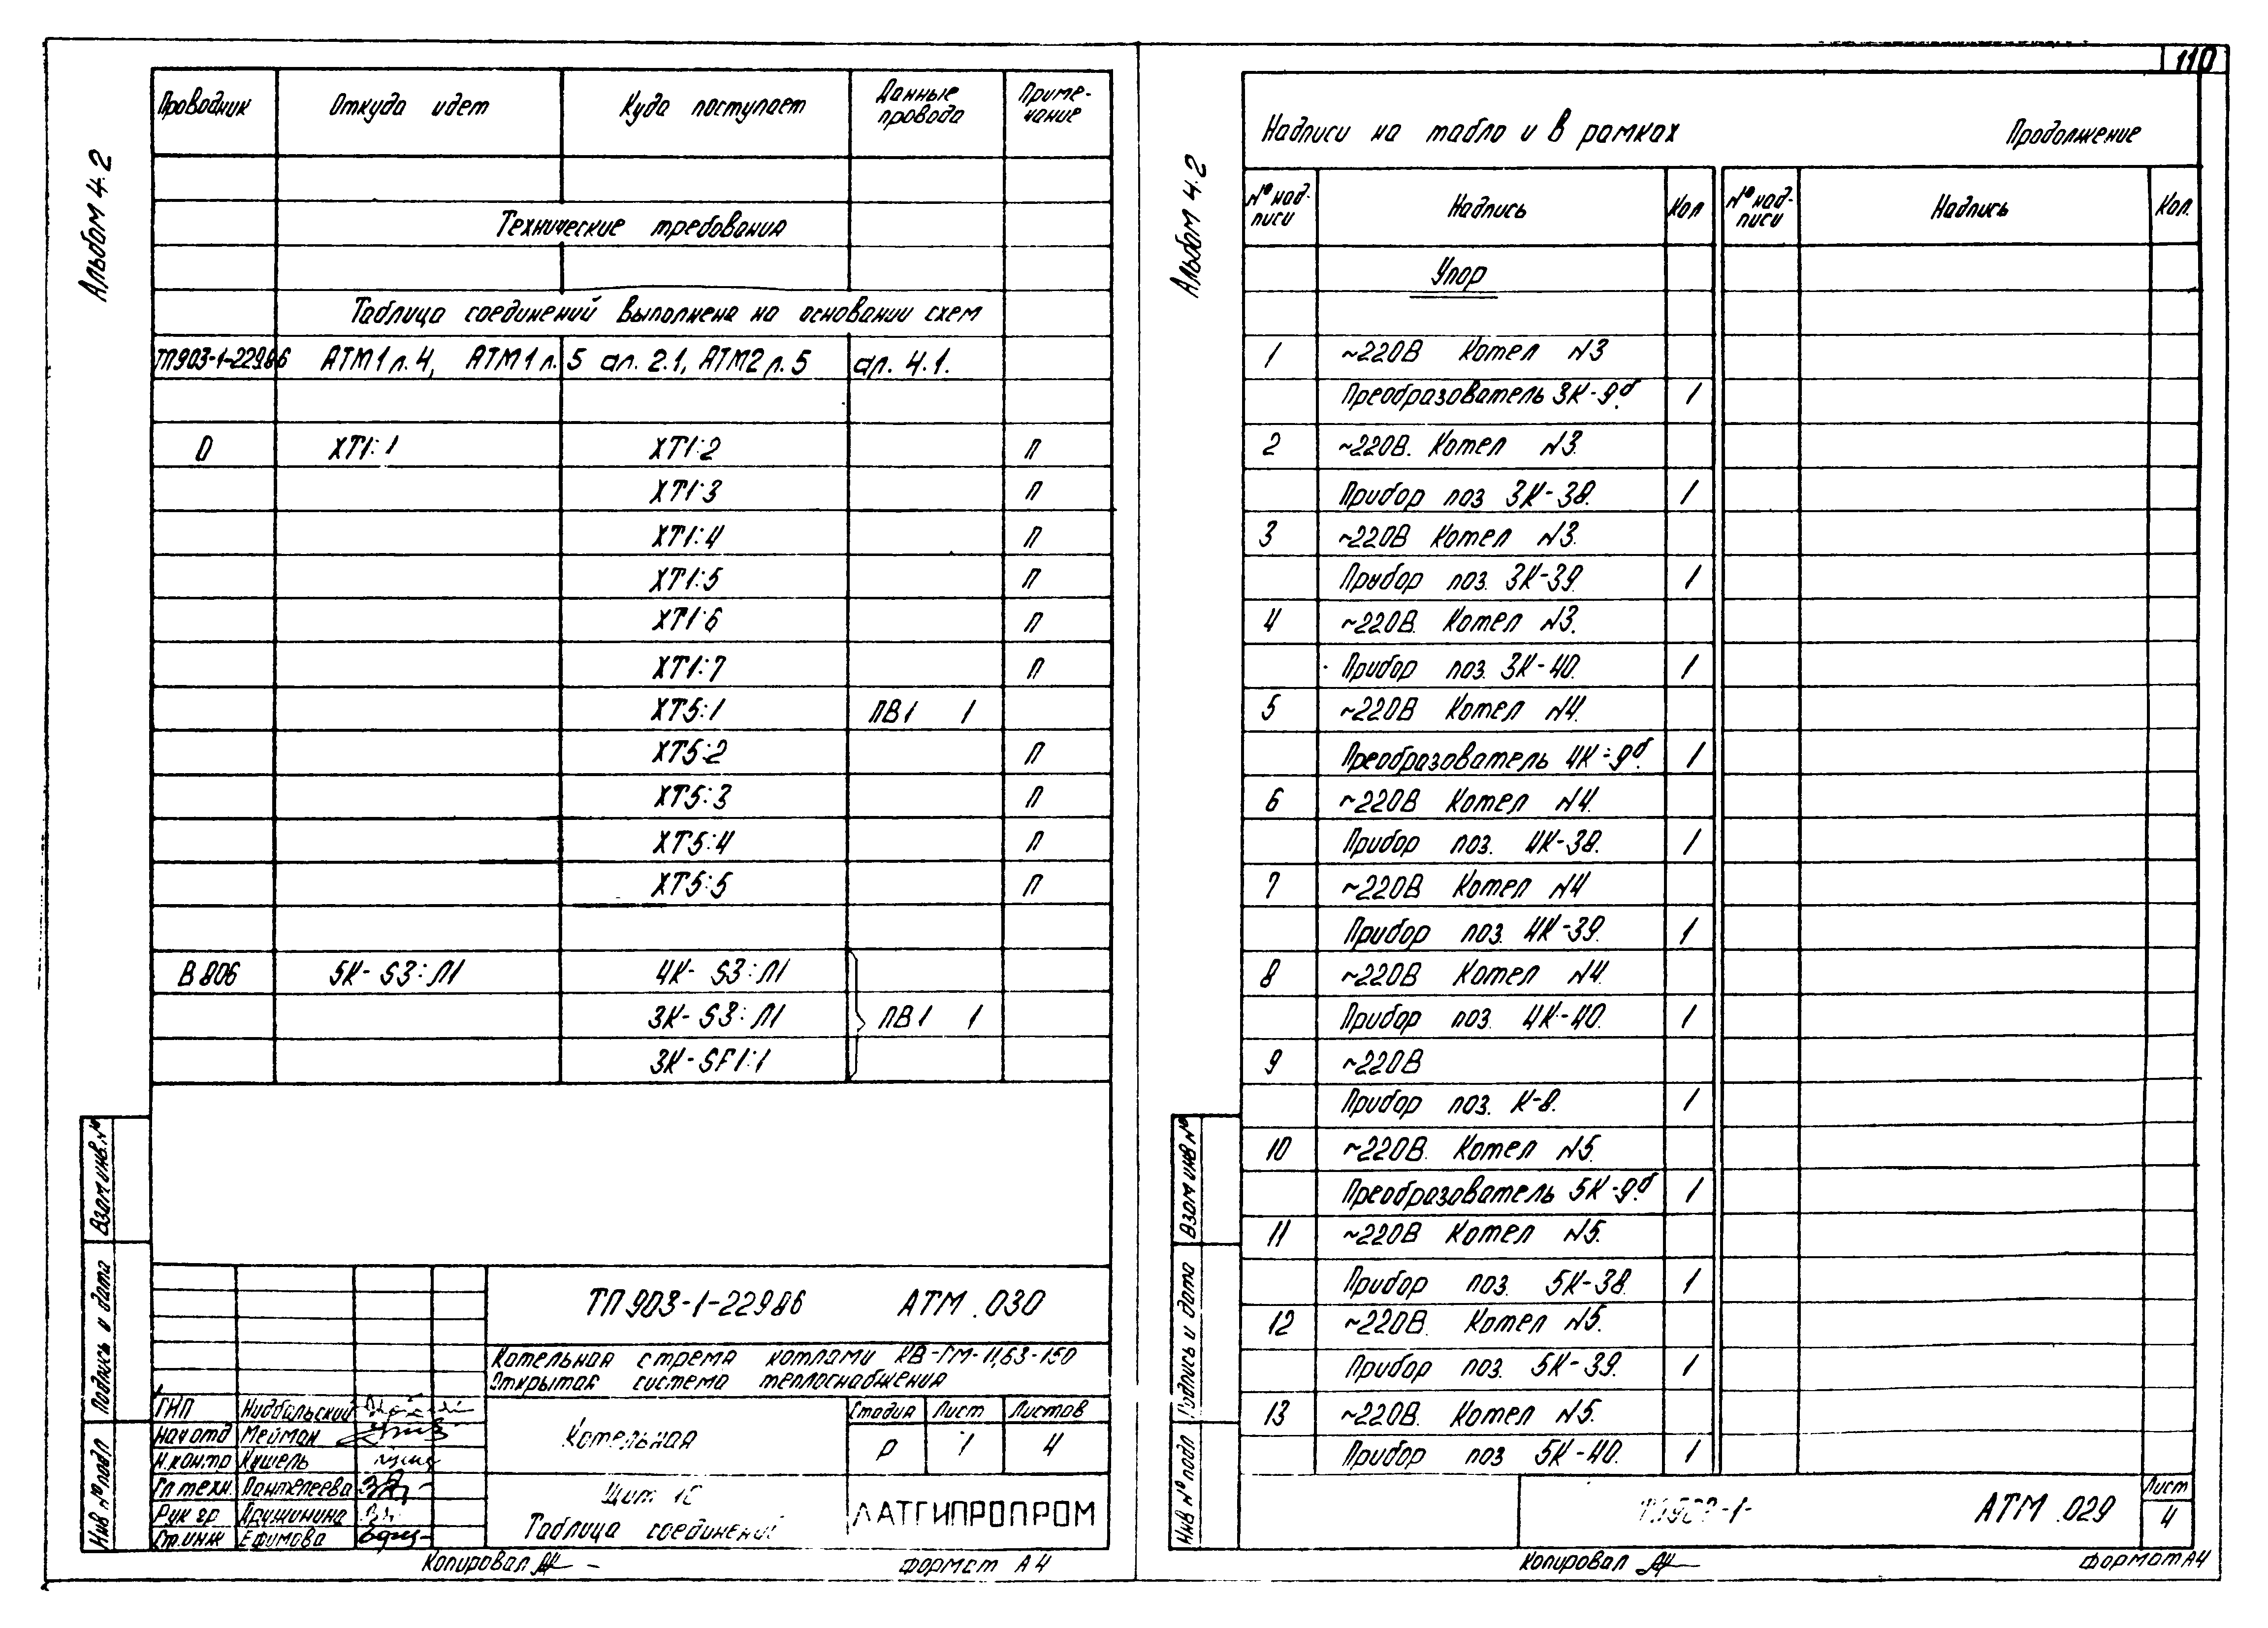 110
Альбом 4.2
Проводник Откуда идет Куда поступает Данные провода Приме-чание
Технические требования
Таблица соединений выполнена на основании схем
ТП903-1-229.86 АТМ1 л.4, АТМ1 л.5 ал. 2.1, АТМ2 л.5 ал. 4.1.
0 ХТ1:1 ХТ1:2 П
ХТ1:3 П
ХТ1:4 П
ХТ1:5 П
ХТ1:6 П
ХТ1:7 П
ХТ5:1 ПВ1 1
ХТ5:2 П
ХТ5:3 П
ХТ5:4 П
ХТ5:5 П
В806 5К-S3:Л1 4К-S3:Л1
3К-S3:Л1 ПВ1 1
3К-SF1:1
Взам инв.№
Подпись и дата
Инв №подл
ТП903-1-229 86 АТМ .030
Котельная с трема котлами КВ-ГМ-11,63-150
Открытая система теплоснабжения
ГИП Нидбальский
Нач отд Мейман
Н.контр Кушель
Гл техн. Пантелеева
Рук гр Дружинина
Ст.инж Ефимова
Котельная
Стадия Лист Листов
Р 1 4
Щит 1С
Таблица соединений
ЛАТГИПРОПРОМ
Копировал
Формат А4
Альбом 4.2
Надписи на табло и в рамках Продолжение
№ над-писи Надпись Кол № над-писи Надпись Кол.
Упор
1 ~220В Котел N3
Преобразователь 3К-9б. 1
2 ~220В. Котел N3.
Прибор поз 3К-38. 1
3 ~220В Котел N3.
Прибор поз. 3К-39. 1
4 ~220В. Котел N3.
Прибор поз. 3К-40. 1
5 ~220В Котел N4.
Преобразователь 4К-9б. 1
6 ~220В Котел N4.
Прибор поз. 4К-38. 1
7 ~220В Котел N4
Прибор поз. 4К-39. 1
8 ~220В Котел N4.
Прибор поз. 4К-40. 1
9 ~220В
Прибор поз. К-8. 1
10 ~220В. Котел N5.
Преобразователь 5К-9б 1
11 ~220В Котел N5.
Прибор поз. 5К-38. 1
12 ~220В. Котел N5.
Прибор поз. 5К-39. 1
13 ~220В. Котел N5.
Прибор поз 5К-40. 1
Взам инв №
Подпись и дата
Инв № подл
АТМ .029
Лист
4
Копировал
Формат А4